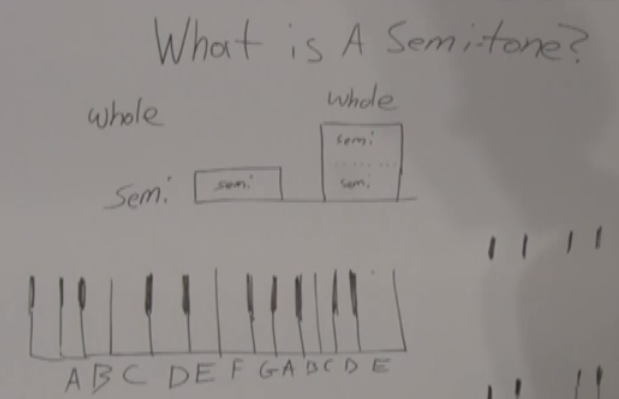 What is A Semi-tone?
whole
whole
semi
semi
Semi
semi
A B C D E F G A B C D E